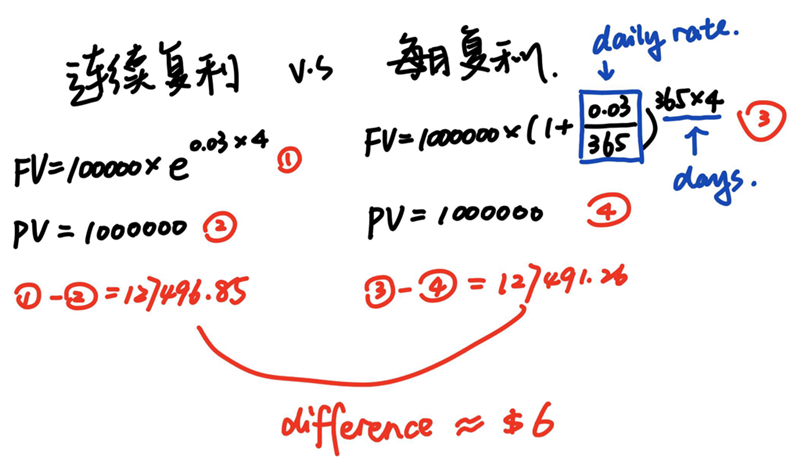 连续复利 v.s 每日复利.
daily rate.
FV=100000×e^0.03×4 ①
PV=1000000 ②
①-②=127496.85
FV=1000000×(1+0.03/365)^365×4 ③
days.
PV=1000000 ④
③-④=127491.26
difference ≈ $6